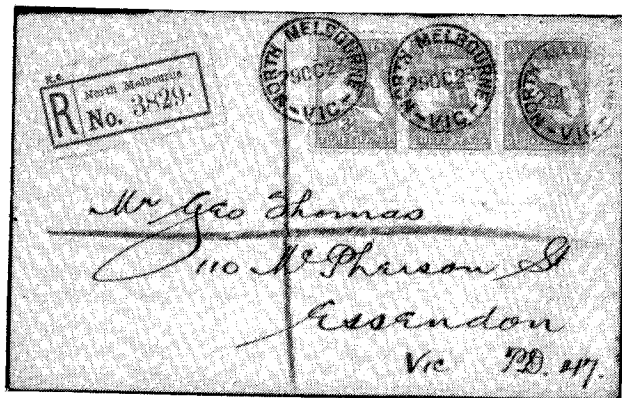 R North Melbourne
No. 3829.
NORTH MELBOURNE
29 OC 23
VIC.
NORTH MELBOURNE
29 OC 23
VIC.
NORTH
VIC.
Mr Geo Thomas
110 McPherson St
Essendon
Vic P.D.